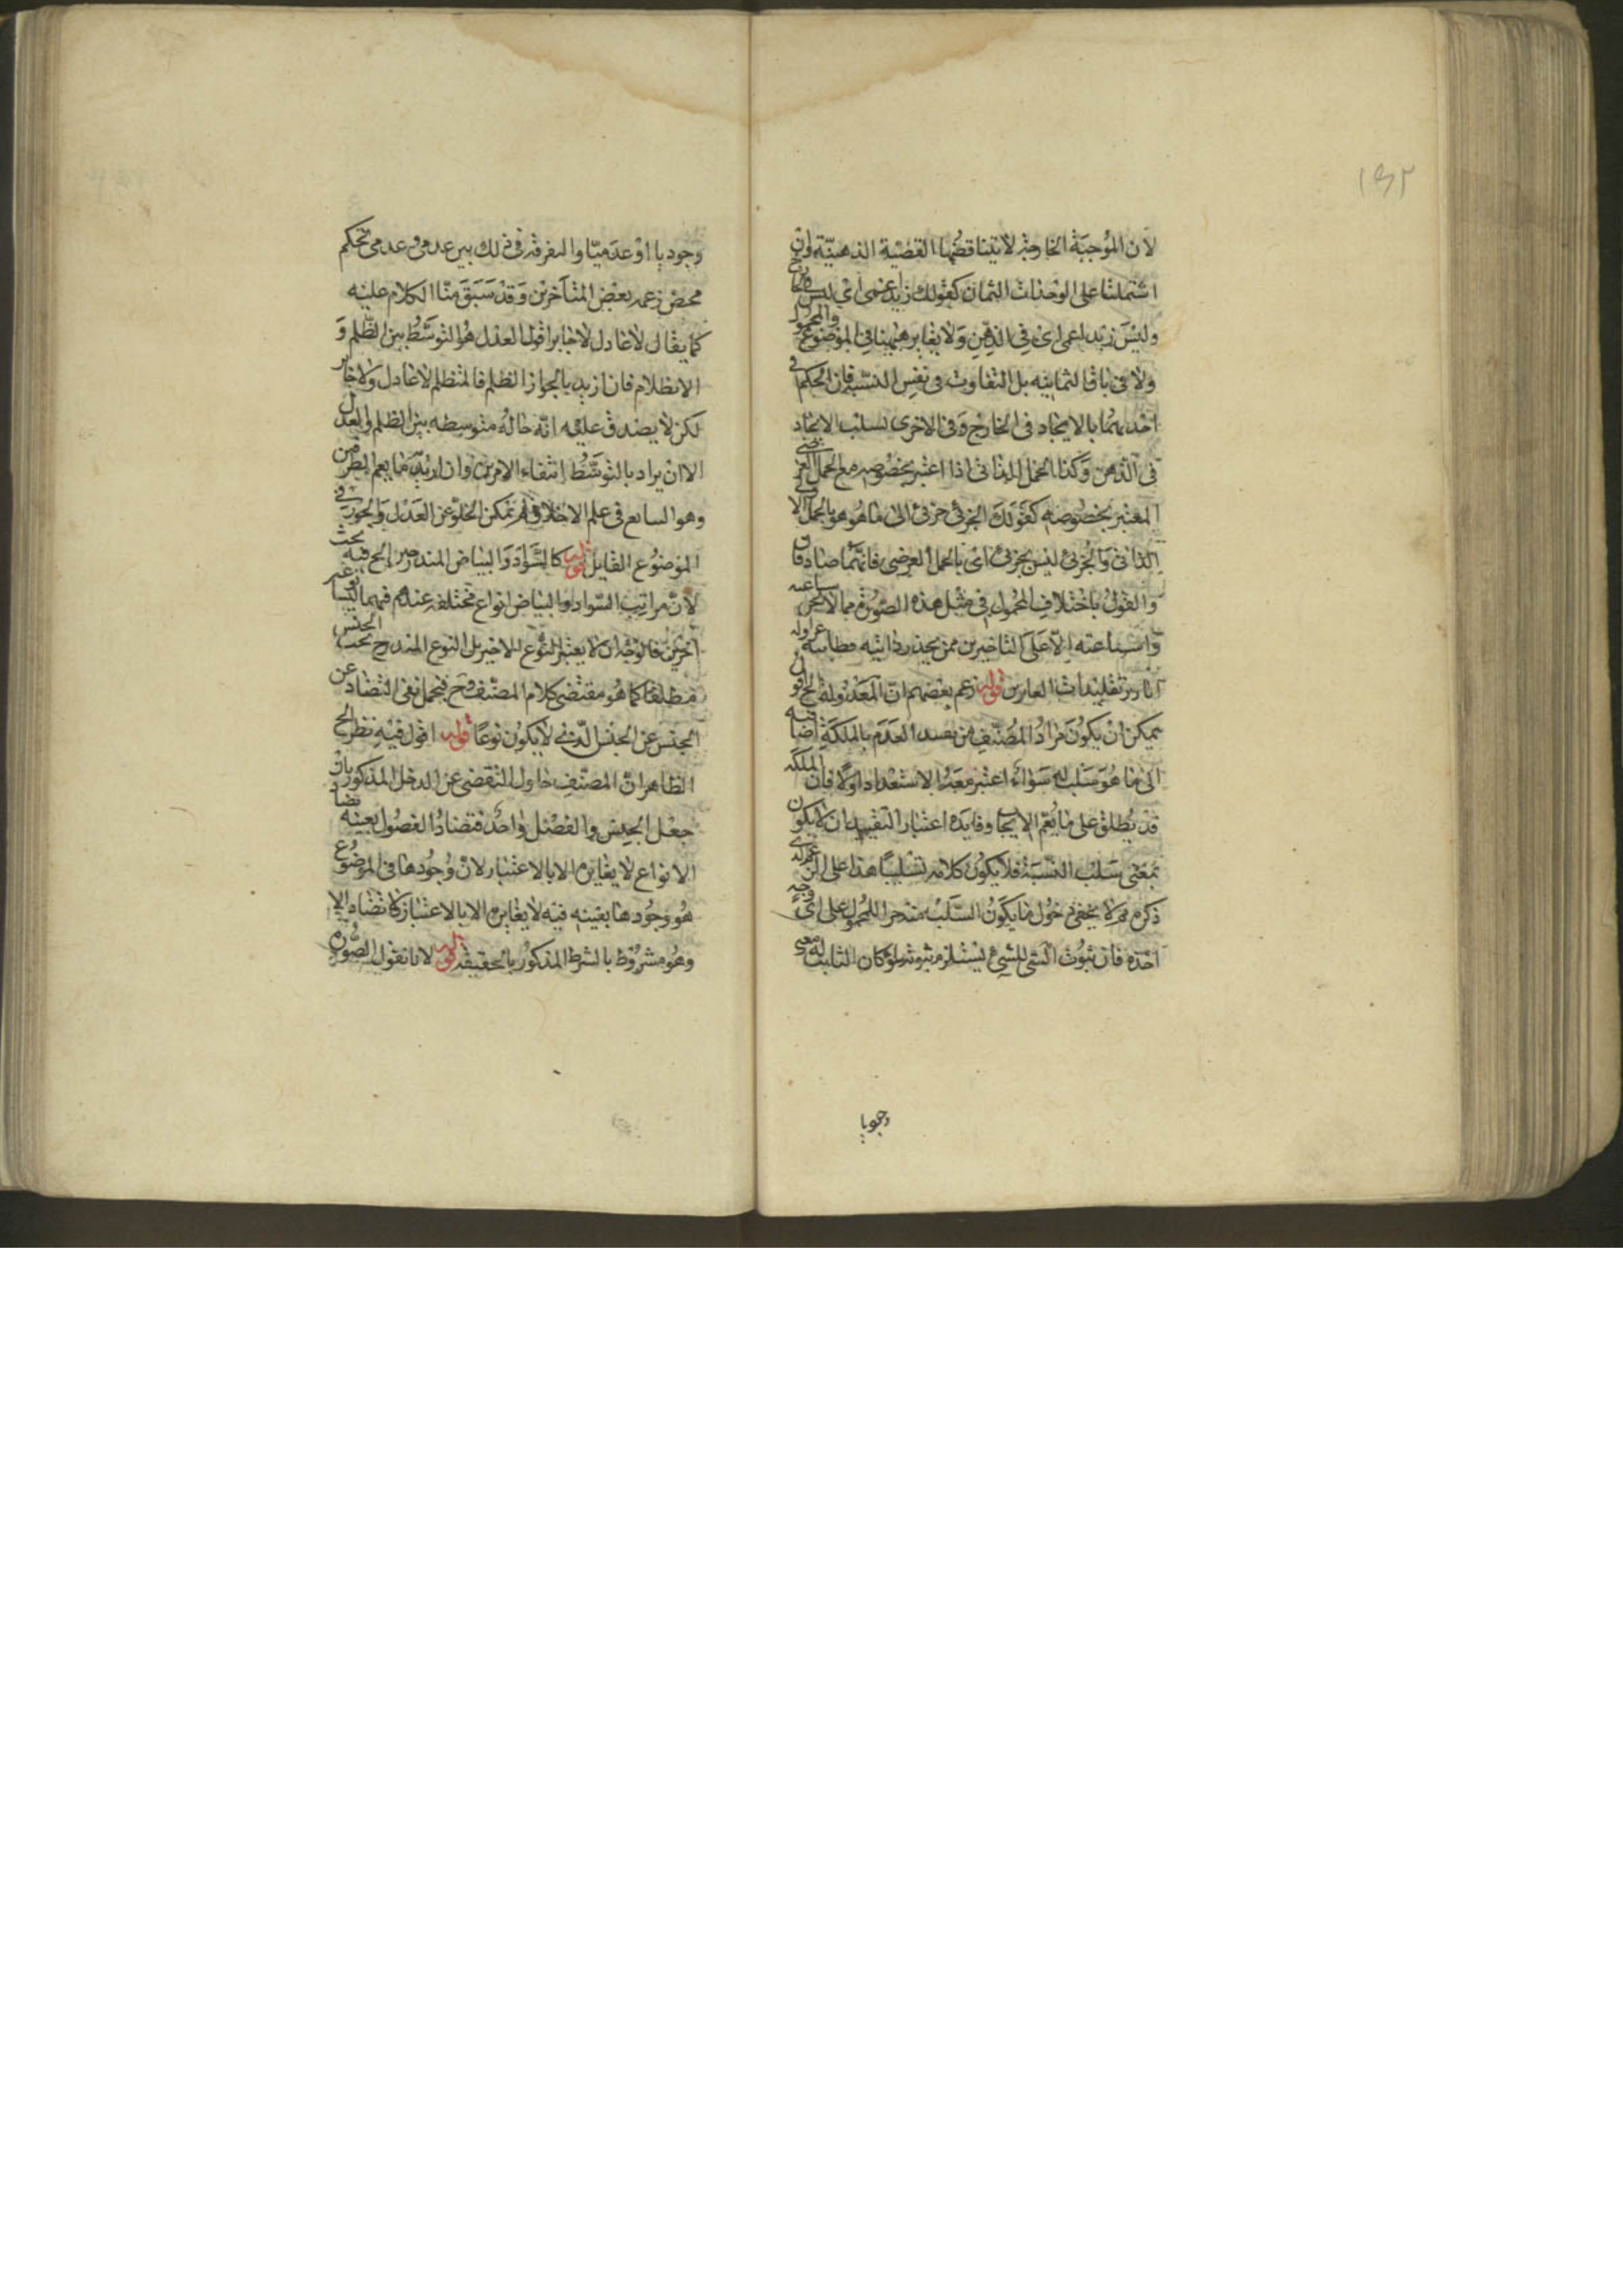 ١٩٢
لان الموجبة الخارجية لا يناقضها القضية الذهنية وان
اشتملتا على الوحدات الثمان كقولك زيد اعمى اى فى الخارج
وليس زيد اعمى اى فى الذهن ولا يغاير ههنا فى الموضوع والمحمول
ولا فى باقى الثمانية بل التفاوت فى نفس النسبة فان الحكم فى
احديهما بالايجاد فى الخارج وفى الاخرى بسلب الايجاد
فى الذهن وكذا الحمل الذاتى اذا اعتبر بخصوصه مع الحمل العرضى
المعتبر بخصوصه كقولك الجزئى جزئى اى ما هو هو بالحمل الاولى
الذاتى والجزئى ليس بجزئى اى بالحمل العرضى فانهما صادقان
والقول باختلاف المحمول فى مثل هذه الصورة مما لا يخفى سماعته
وشناعته الا على القاصرين ممن يجذب
اثار تقليدات العابرين قوله زعم بعضهم ان المعدولة الخ اقول
يمكن ان يكون مراد المصنف من تفسد العدم بالملكة اضافته
الى ما هو سلب له سواء اعتبر معه الاستعداد او لا فان الملكة
قد يطلق على ما يعم الايجاب وفايدة اعتبار التقييد ان لا يكون
بمعنى سلب النسبة فلا يكون كلامه تسليبا هذا على ان
ذكره مما لا يخفى حول ما يكون السلب مندرجا للمحمول على اى وجه
اخذه فان ثبوت الشى للشىء يستلزم ثبوته ولو كان الثابت له معنى
وجوديا
وجوديا او عدميا والتفرقة فى ذلك بين عدمى وعدمى تحكم
محض زعمه بعض المتاخرين وقد سبق منا الكلام عليه
كما يقال لا عادل لا جابر اقول العدل هو التوسط بين الظلم و
الانظلام فان اريد بالجور الظلم فالمنظلم لا عادل ولا جابر
لكن لا يصدق عليه انه حالة متوسطة بين الظلم والعدل
الا ان يراد بالتوسط انتفاء الامرين وان اريد به ما يعم الطرفين
وهو الشايع فى علم الاخلاق لم يمكن الخلو عن العدل والجور فى
الموضوع القابل قوله كالسواد والبياض المندرجين الخ فيه بحث
لان مراتب السواد والبياض انواع مختلفة عندهم فهما ليسا نوعين
اخيرين فالوجه ان لا يعتبر النوع الاخير بل النوع المندرج تحت الجنس
مطلقا كما هو مقتضى كلام المصنف وح فيحمل نفى التضاد عن
الجنس عن الجنس الذى لا يكون نوعا قوله اقول فيه نظر الخ
الظاهر ان المصنف حاول التقصى عن الدخل المذكور بان
جعل الجنس والفصل واحد فتضاد الفصول بعينه تضاد
الانواع لا يغايره الا بالاعتبار لان وجودها فى الموضوع
هو وجودها بعينه فيه لا يغايره الا بالاعتبار كا تضاد الا
وهو مشروط بالشرط المذكور بالحقيقة قوله لانا نقول الصورة